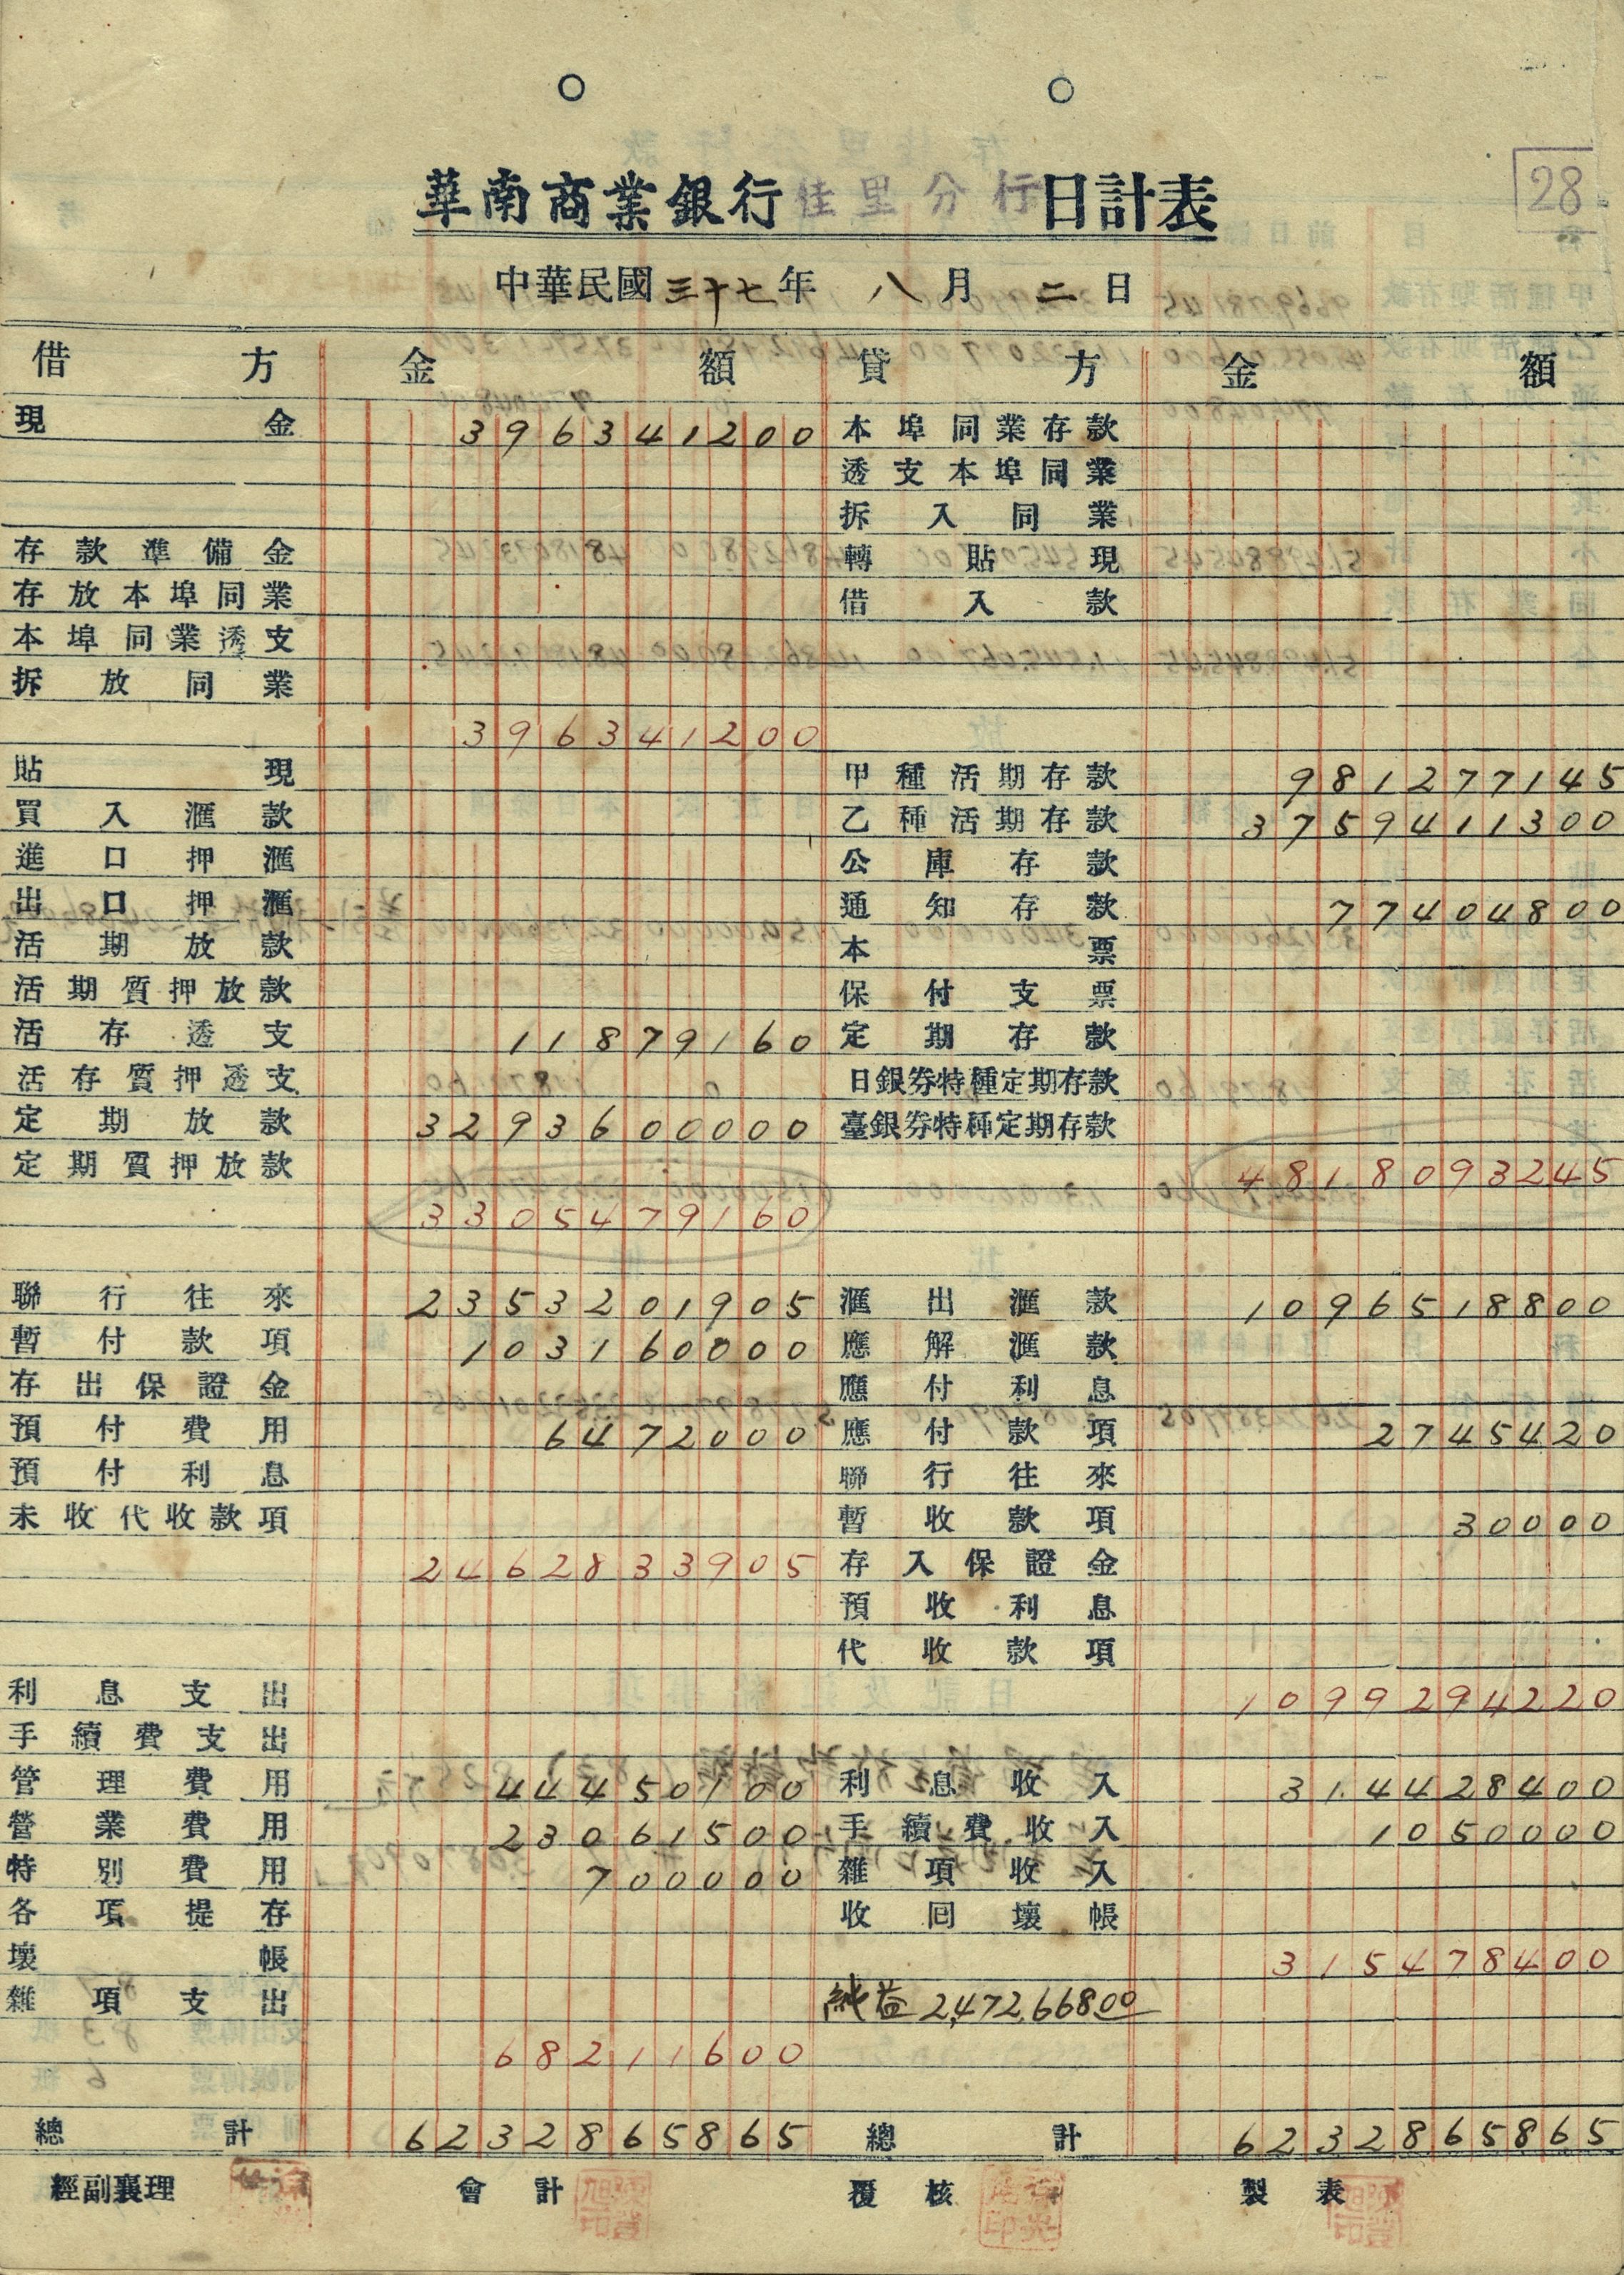 28
華南商業銀行佳里分行日計表
中華民國三十七年 八月 二日
借方 金額 貸方 金額
現金 396341200 本埠同業存款
透支本埠同業
拆入同業
存款準備金 轉貼現
存放本埠同業 借入款
本埠同業透支
拆放同業
396341200
貼現 甲種活期存款 981277145
買入滙款 乙種活期存款 3759411300
進口押滙 公庫存款
出口押滙 通知存款 77404800
活期放款 本票
活期質押放款 保付支票
活存透支 11879160 定期存款
活存質押透支 日銀券特種定期存款
定期放款 3293600000 臺銀券特種定期存款
定期質押放款 4818093245
3305479160
聯行往來 2353201905 滙出滙款 1096518800
暫付款項 103160000 應解滙款
存出保證金 應付利息
預付費用 6472000 應付款項 2745420
預付利息 聯行往來
未收代收款項 暫收款項 30000
2462833905 存入保證金
預收利息
代收款項
利息支出 1099294220
手續費支出
管理費用 44450100 利息收入 314428400
營業費用 23061500 手續費收入 1050000
特別費用 700000 雜項收入
各項提存 收回壞帳
壞帳 315478400
雜項支出 純益 2,472,66800
68211600
總計 6232865865 總計 6232865865
經副襄理 會計 覆核 製表